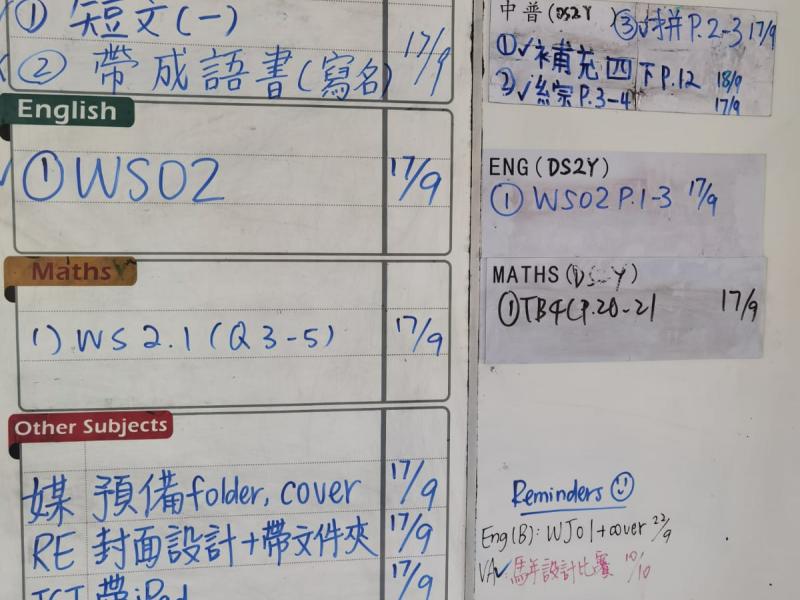 ① 短文(一)
② 帶成語書(寫名) 17/9
English
① WS02 17/9
Maths
1) WS 2.1 (Q3-5) 17/9
Other Subjects
媒 預備folder, cover 17/9
RE 封面設計+帶文件夾 17/9
ICT 帶iPad 17/9
中普(DS2Y) ③✓拼P.2-3 17/9
①✓補充四下P.12 18/9
②✓綜P.3-4 17/9
ENG (DS2Y)
① WS02 P.1-3 17/9
MATHS (DS2Y)
① TB4C P.20-21 17/9
Reminders
Eng(B): WJ01+cover 22/9
VA✓: 馬年設計比賽 10/10